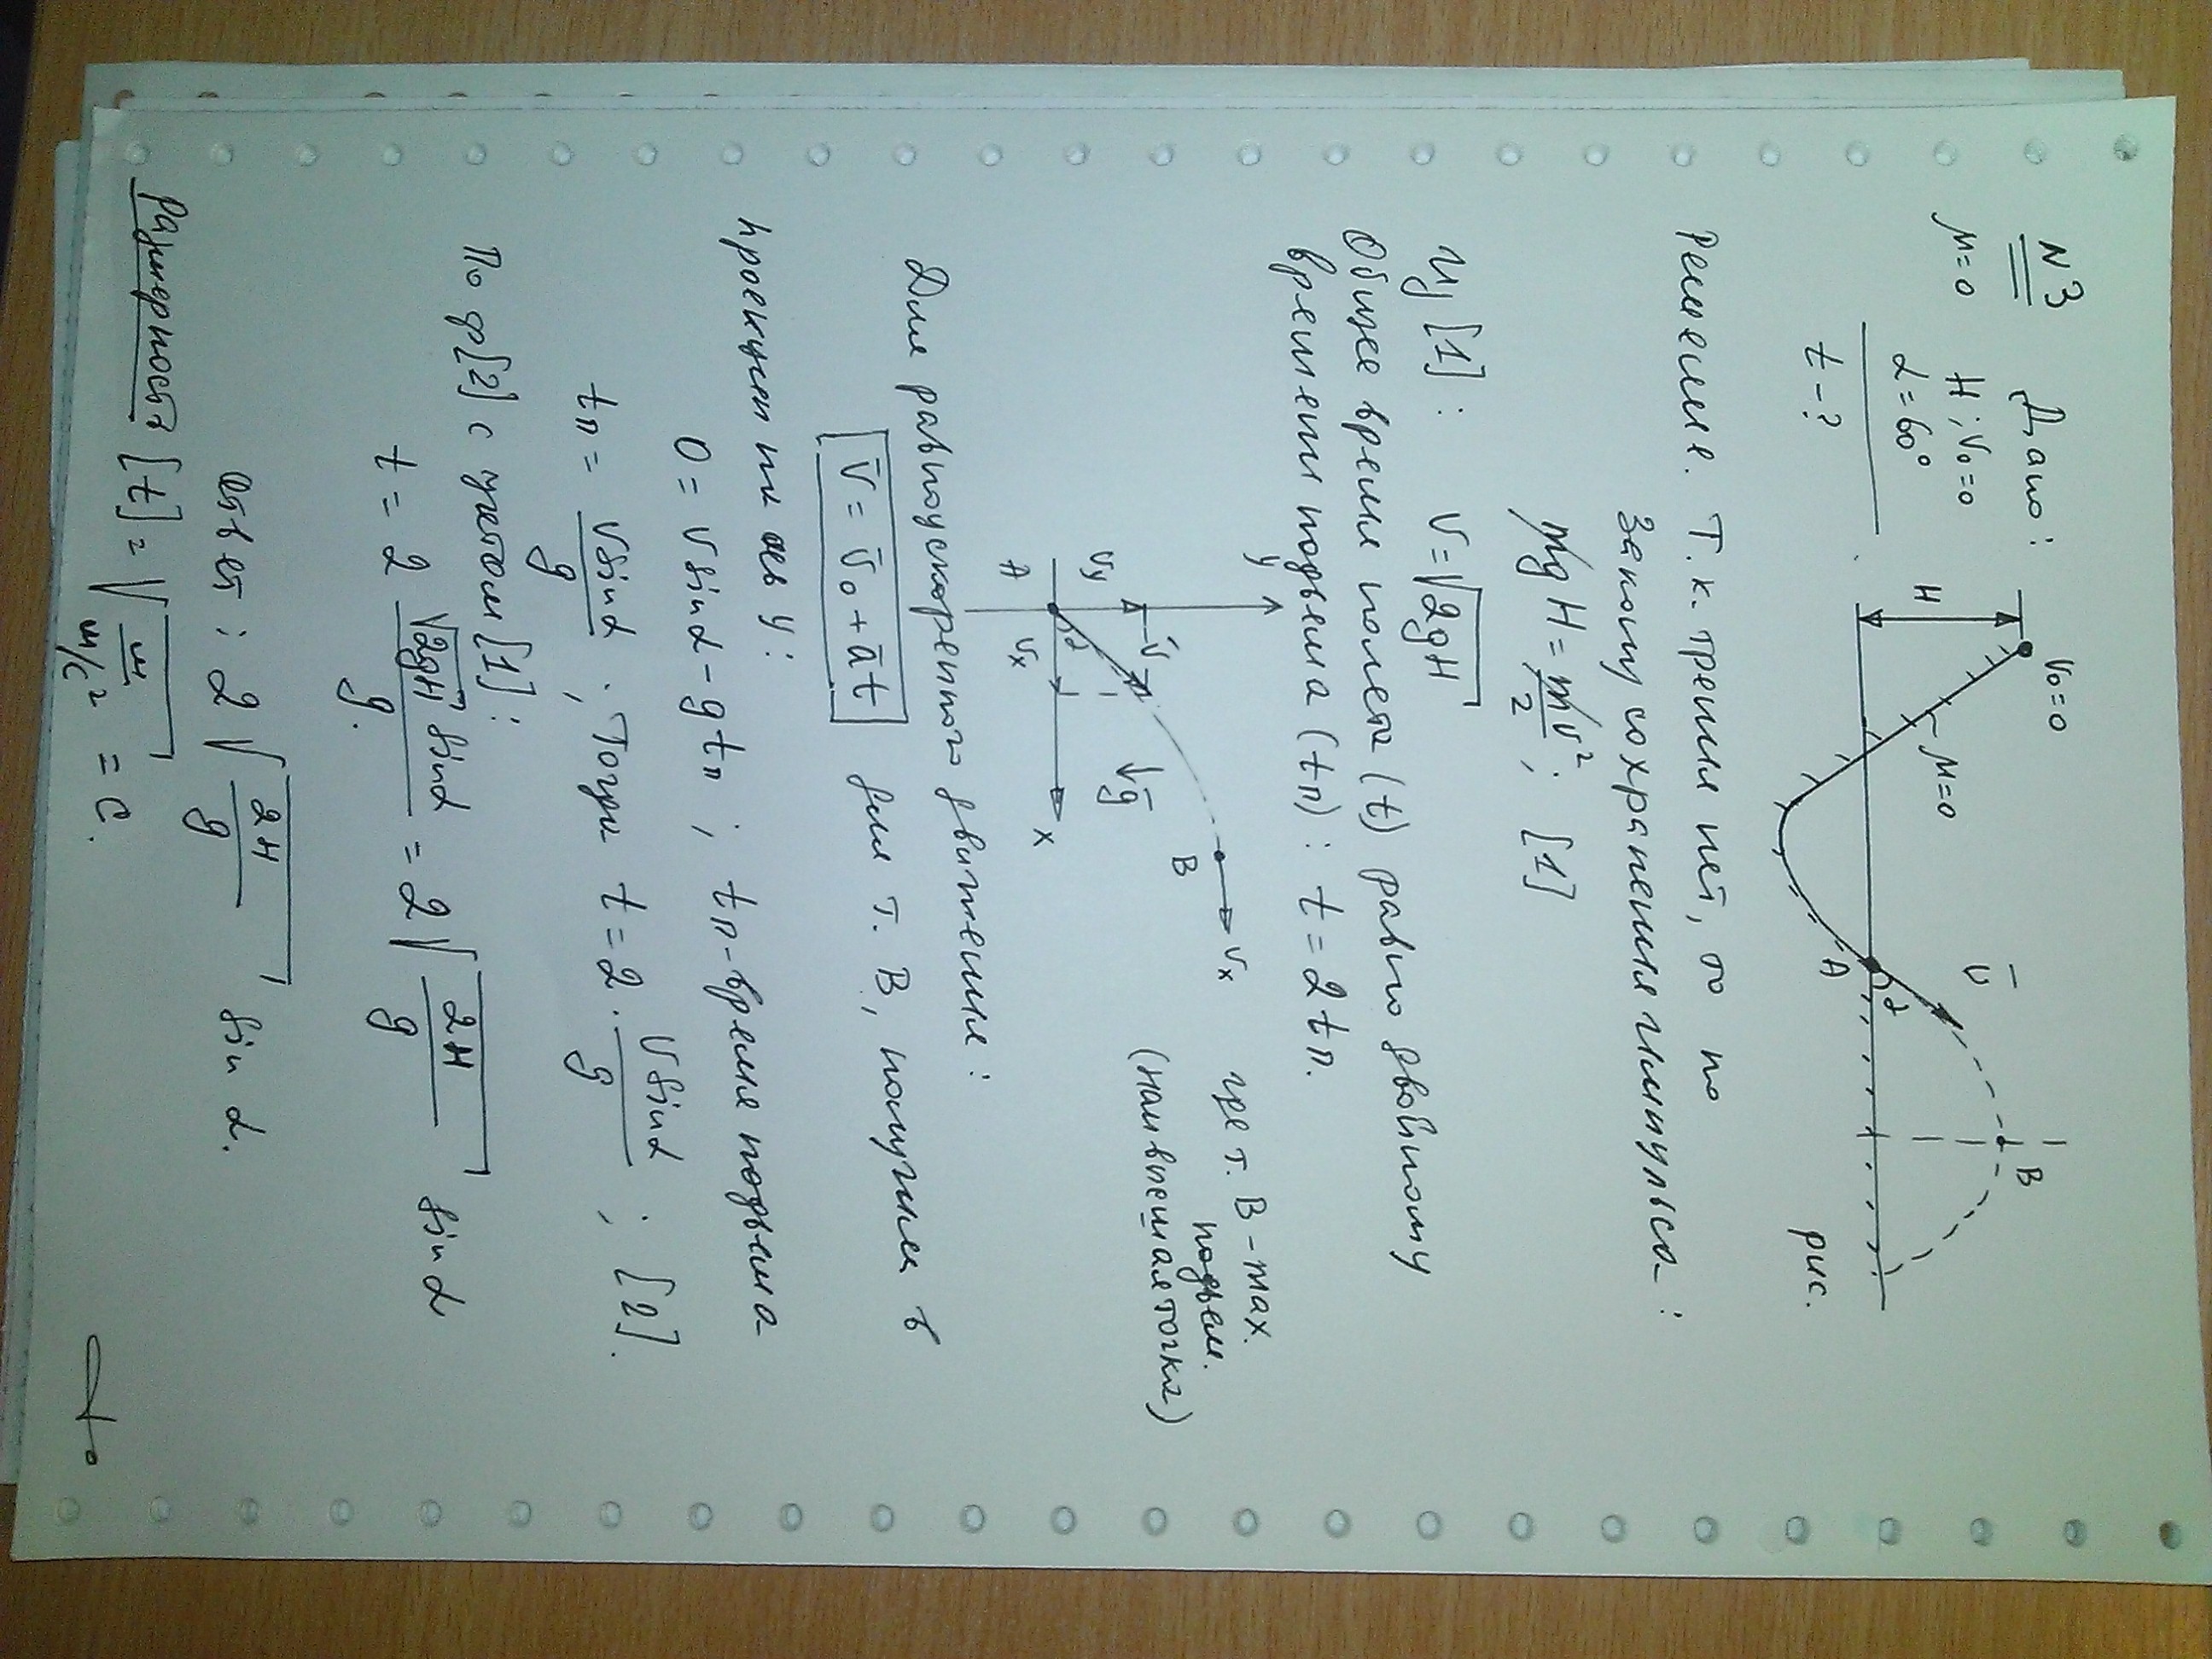 N3 Дано:
μ=0 H; V₀=0
α=60°
t-?
V₀=0
H
μ=0
A
α
V̄
B
рис.
Решение. Т.к. трения нет, то по
закону сохранения импульса:
mgH = mv²/2; [1]
Из [1]: V=√2gH
Общее время полета (t) равно двойному
времени подъема (tп): t=2tп.
y
Vy
V̄
α
A
Vx
x
ḡ
B
Vx
где т. B-max.
подъем.
(наивысшая точка)
Для равноускоренного движения:
V̄=V̄₀+āt для т. B, получим в
проекции на ось y:
0=Vsinα-gtп; tп-время подъема
tп=Vsinα/g, Тогда t=2·Vsinα/g; [2].
По ф[2] с учетом [1]:
t=2 √2gH sinα/g=2√2H/g sinα
Ответ: 2√2H/g sinα.
Размерность [t]=√м/м/с²=c.